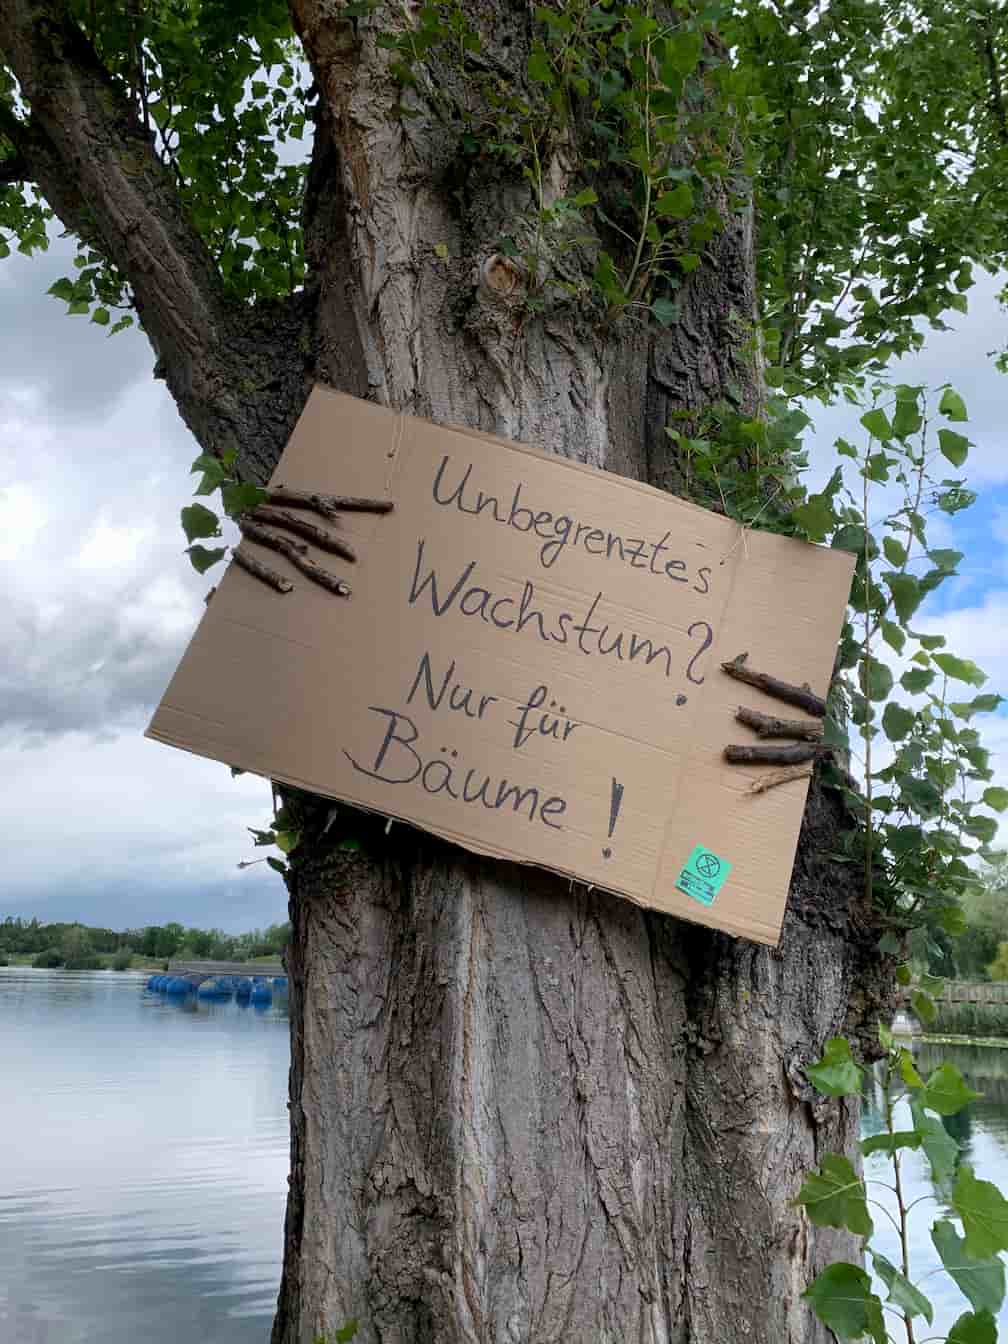 Unbegrenztes
Wachstum?
Nur für
Bäume!